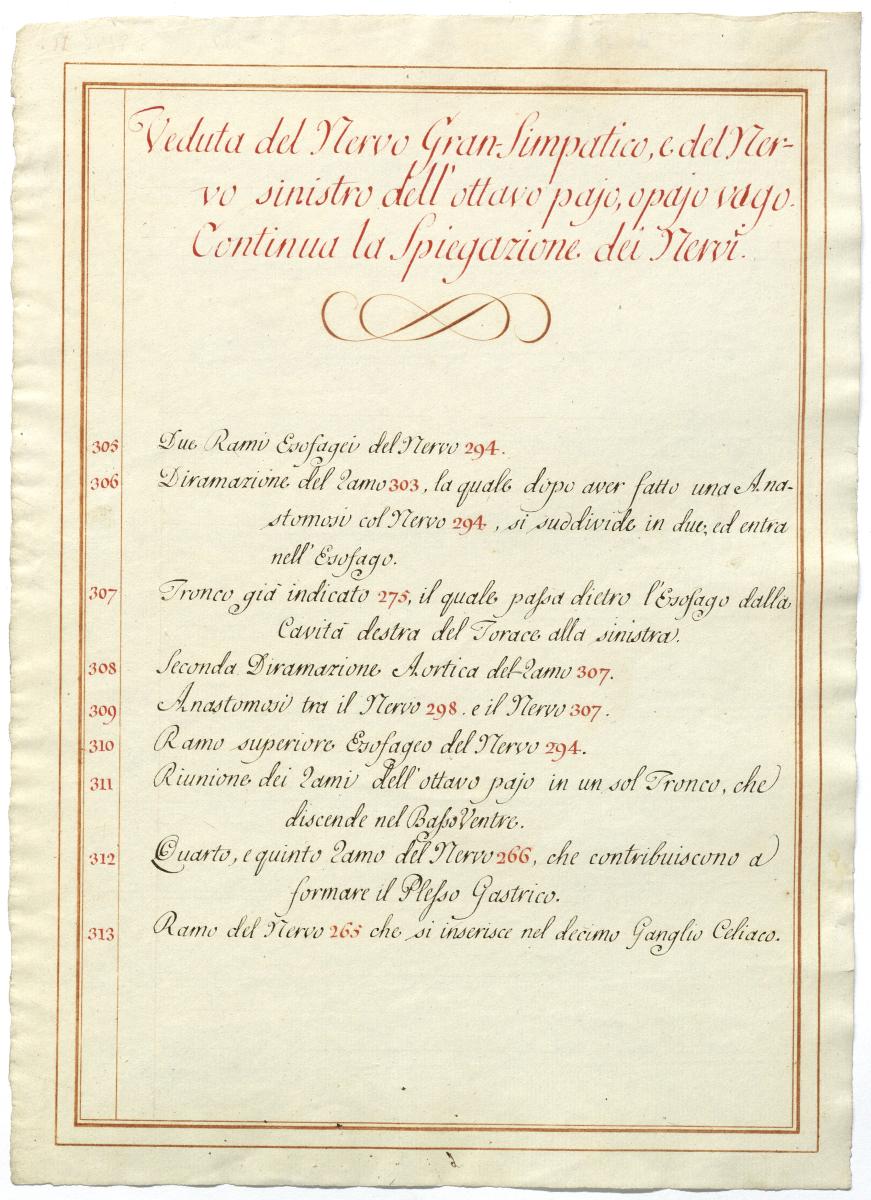 Veduta del Nervo Gran-Simpatico, e del Ner-
vo sinistro dell' ottavo pajo, o pajo vago.
Continua la Spiegazione dei Nervi.
305 Due Rami Esofagei del Nervo 294.
306 Diramazione del Ramo 303, la quale dopo aver fatto una Ana-
stomosi col Nervo 294, si suddivide in due, ed entra
nell' Esofago.
307 Tronco già indicato 275, il quale passa dietro l'Esofago dalla
Cavità destra del Torace alla sinistra.
308 Seconda Diramazione Aortica del Ramo 307.
309 Anastomosi tra il Nervo 298. e il Nervo 307.
310 Ramo superiore Esofageo del Nervo 294.
311 Riunione dei Rami dell' ottavo pajo in un sol Tronco, che
discende nel Basso Ventre.
312 Quarto, e quinto Ramo del Nervo 266, che contribuiscono a
formare il Plesso Gastrico.
313 Ramo del Nervo 265 che si inserisce nel decimo Ganglio Celiaco.